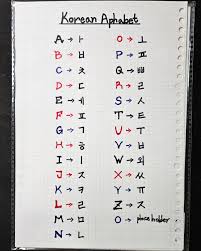 Korean Alphabet
A → ㅏ
B → ㅂ
C → ㅊ
D → ㄷ
E → ㅔ
F → ㅍ
G →
H → ㅎ
I → ㅣ
J → ㅈ
K → ㅋ
L → ㄹ
M → ㅁ
N → ㄴ
O → ㅗ
P → ㅍ
Q →
R → ㄹ
S → ㅅ
T → ㅌ
U → ㅜ
V → ㅂ
W →
X →
Y →
Z → ㅈ
O → place holder